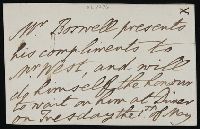 Mr. Boswell presents
his compliments to
Mr West, and will
do himself the honour
to wait on him at Diner
on Tuesday the 7th of May